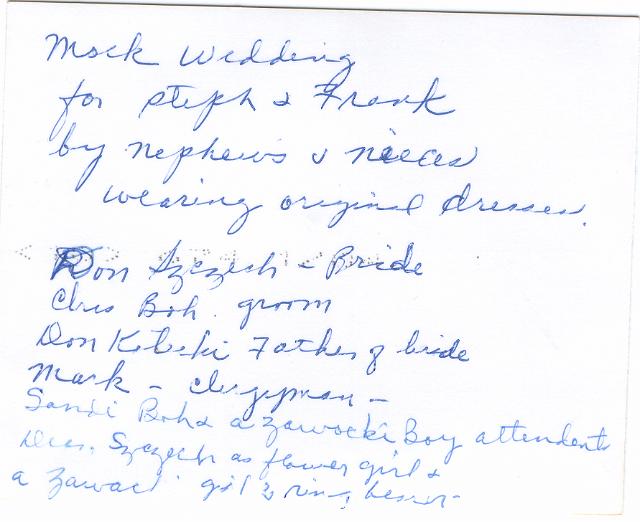 Mock Wedding
for Steph & Frank
by nephews & nieces
wearing original dresses.
Ron Szczech - Bride
Chris Boh. groom
Don Kebeki Father of bride
Mark - clergyman -
Sandi Boh & a Zawacki Boy attendents
Szczech as flower girl &
a Zawacki girl & ring bearer-